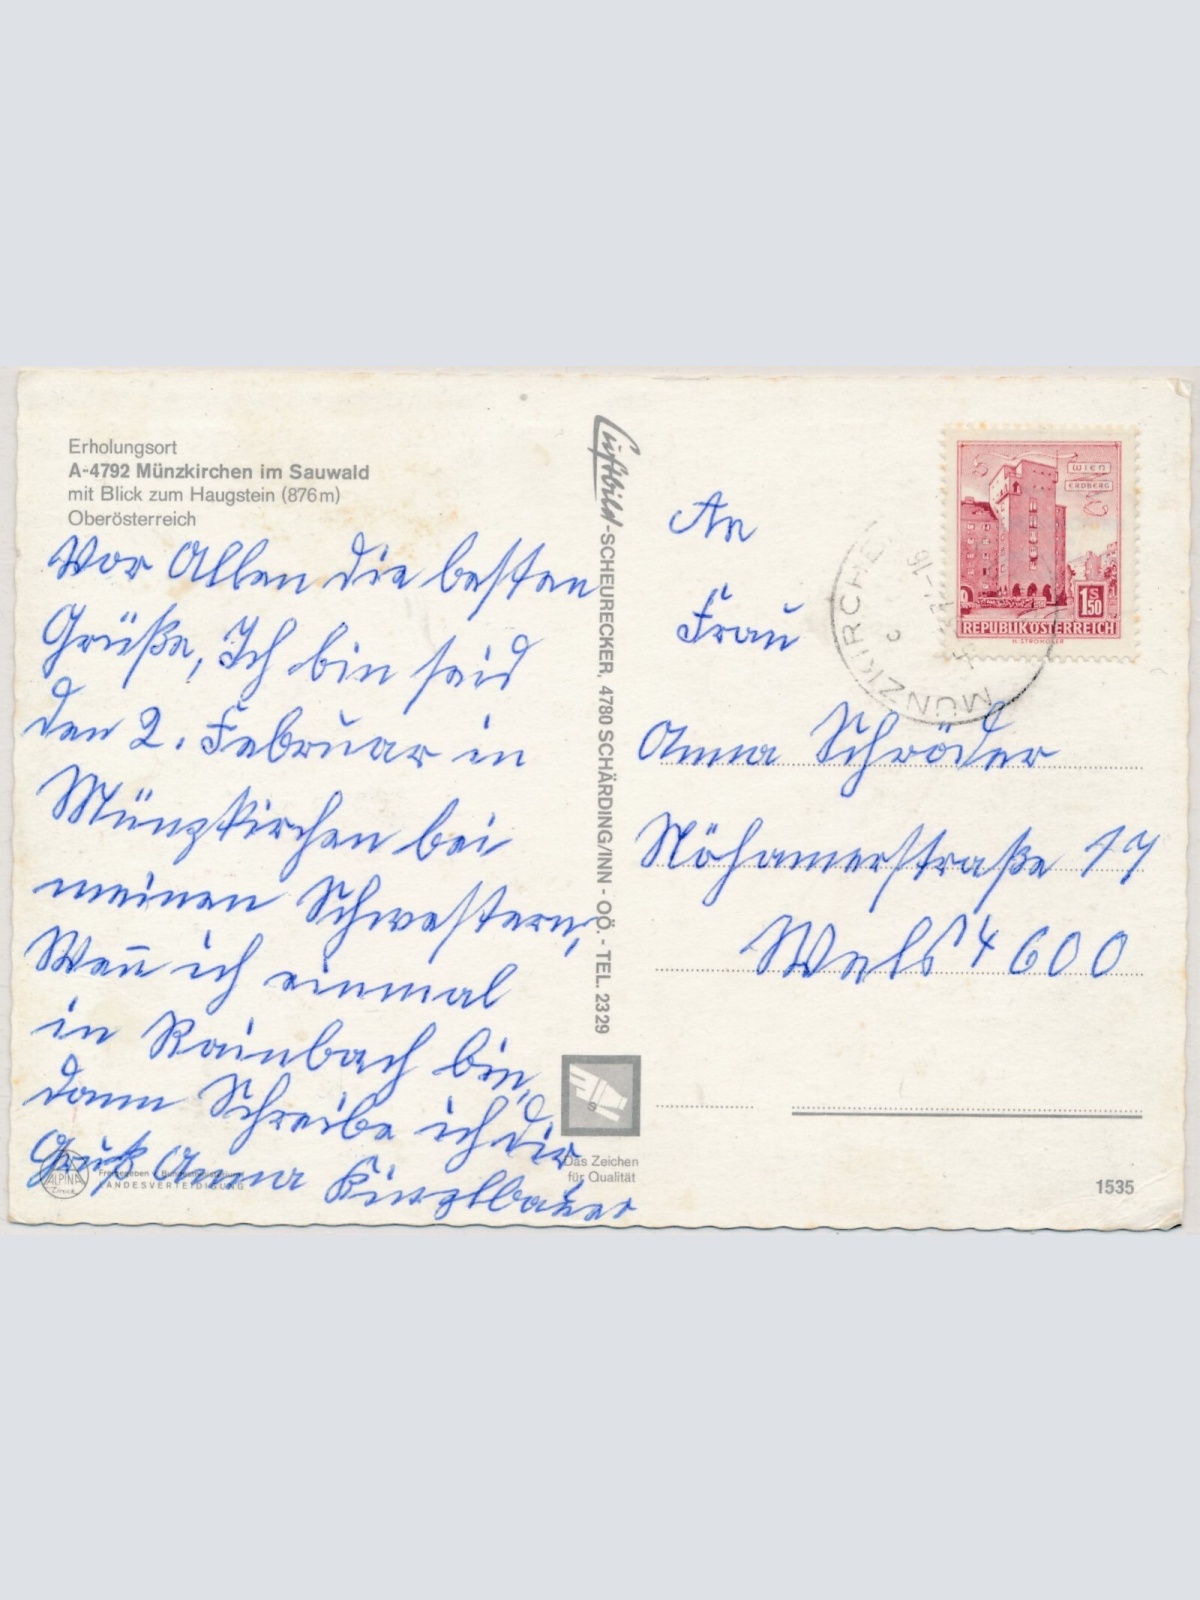 Erholungsort
A-4792 Münzkirchen im Sauwald
mit Blick zum Haugstein (876 m)
Oberösterreich
Vor Allen die besten
Grüße, Ich bin seid
den 2. Februar in
Münzkirchen bei
meinen Schwestern,
Wen̄ ich einmal
in Rainbach bin,
dann Schreibe ich dir
Gruß Anna
ALPINA
LANDESVERTEIDIGUNG
Luftbild-SCHEURECKER, 4780 SCHÄRDING/INN - OÖ. - TEL. 2329
Das Zeichen
für Qualität
WIEN
ERDBERG
1 S 50
REPUBLIK ÖSTERREICH
H. STROHOFER
MÜNZKIRCHEN
An
Frau
Anna Schröder
Nöhamerstraße 17
Wels 4600
1535